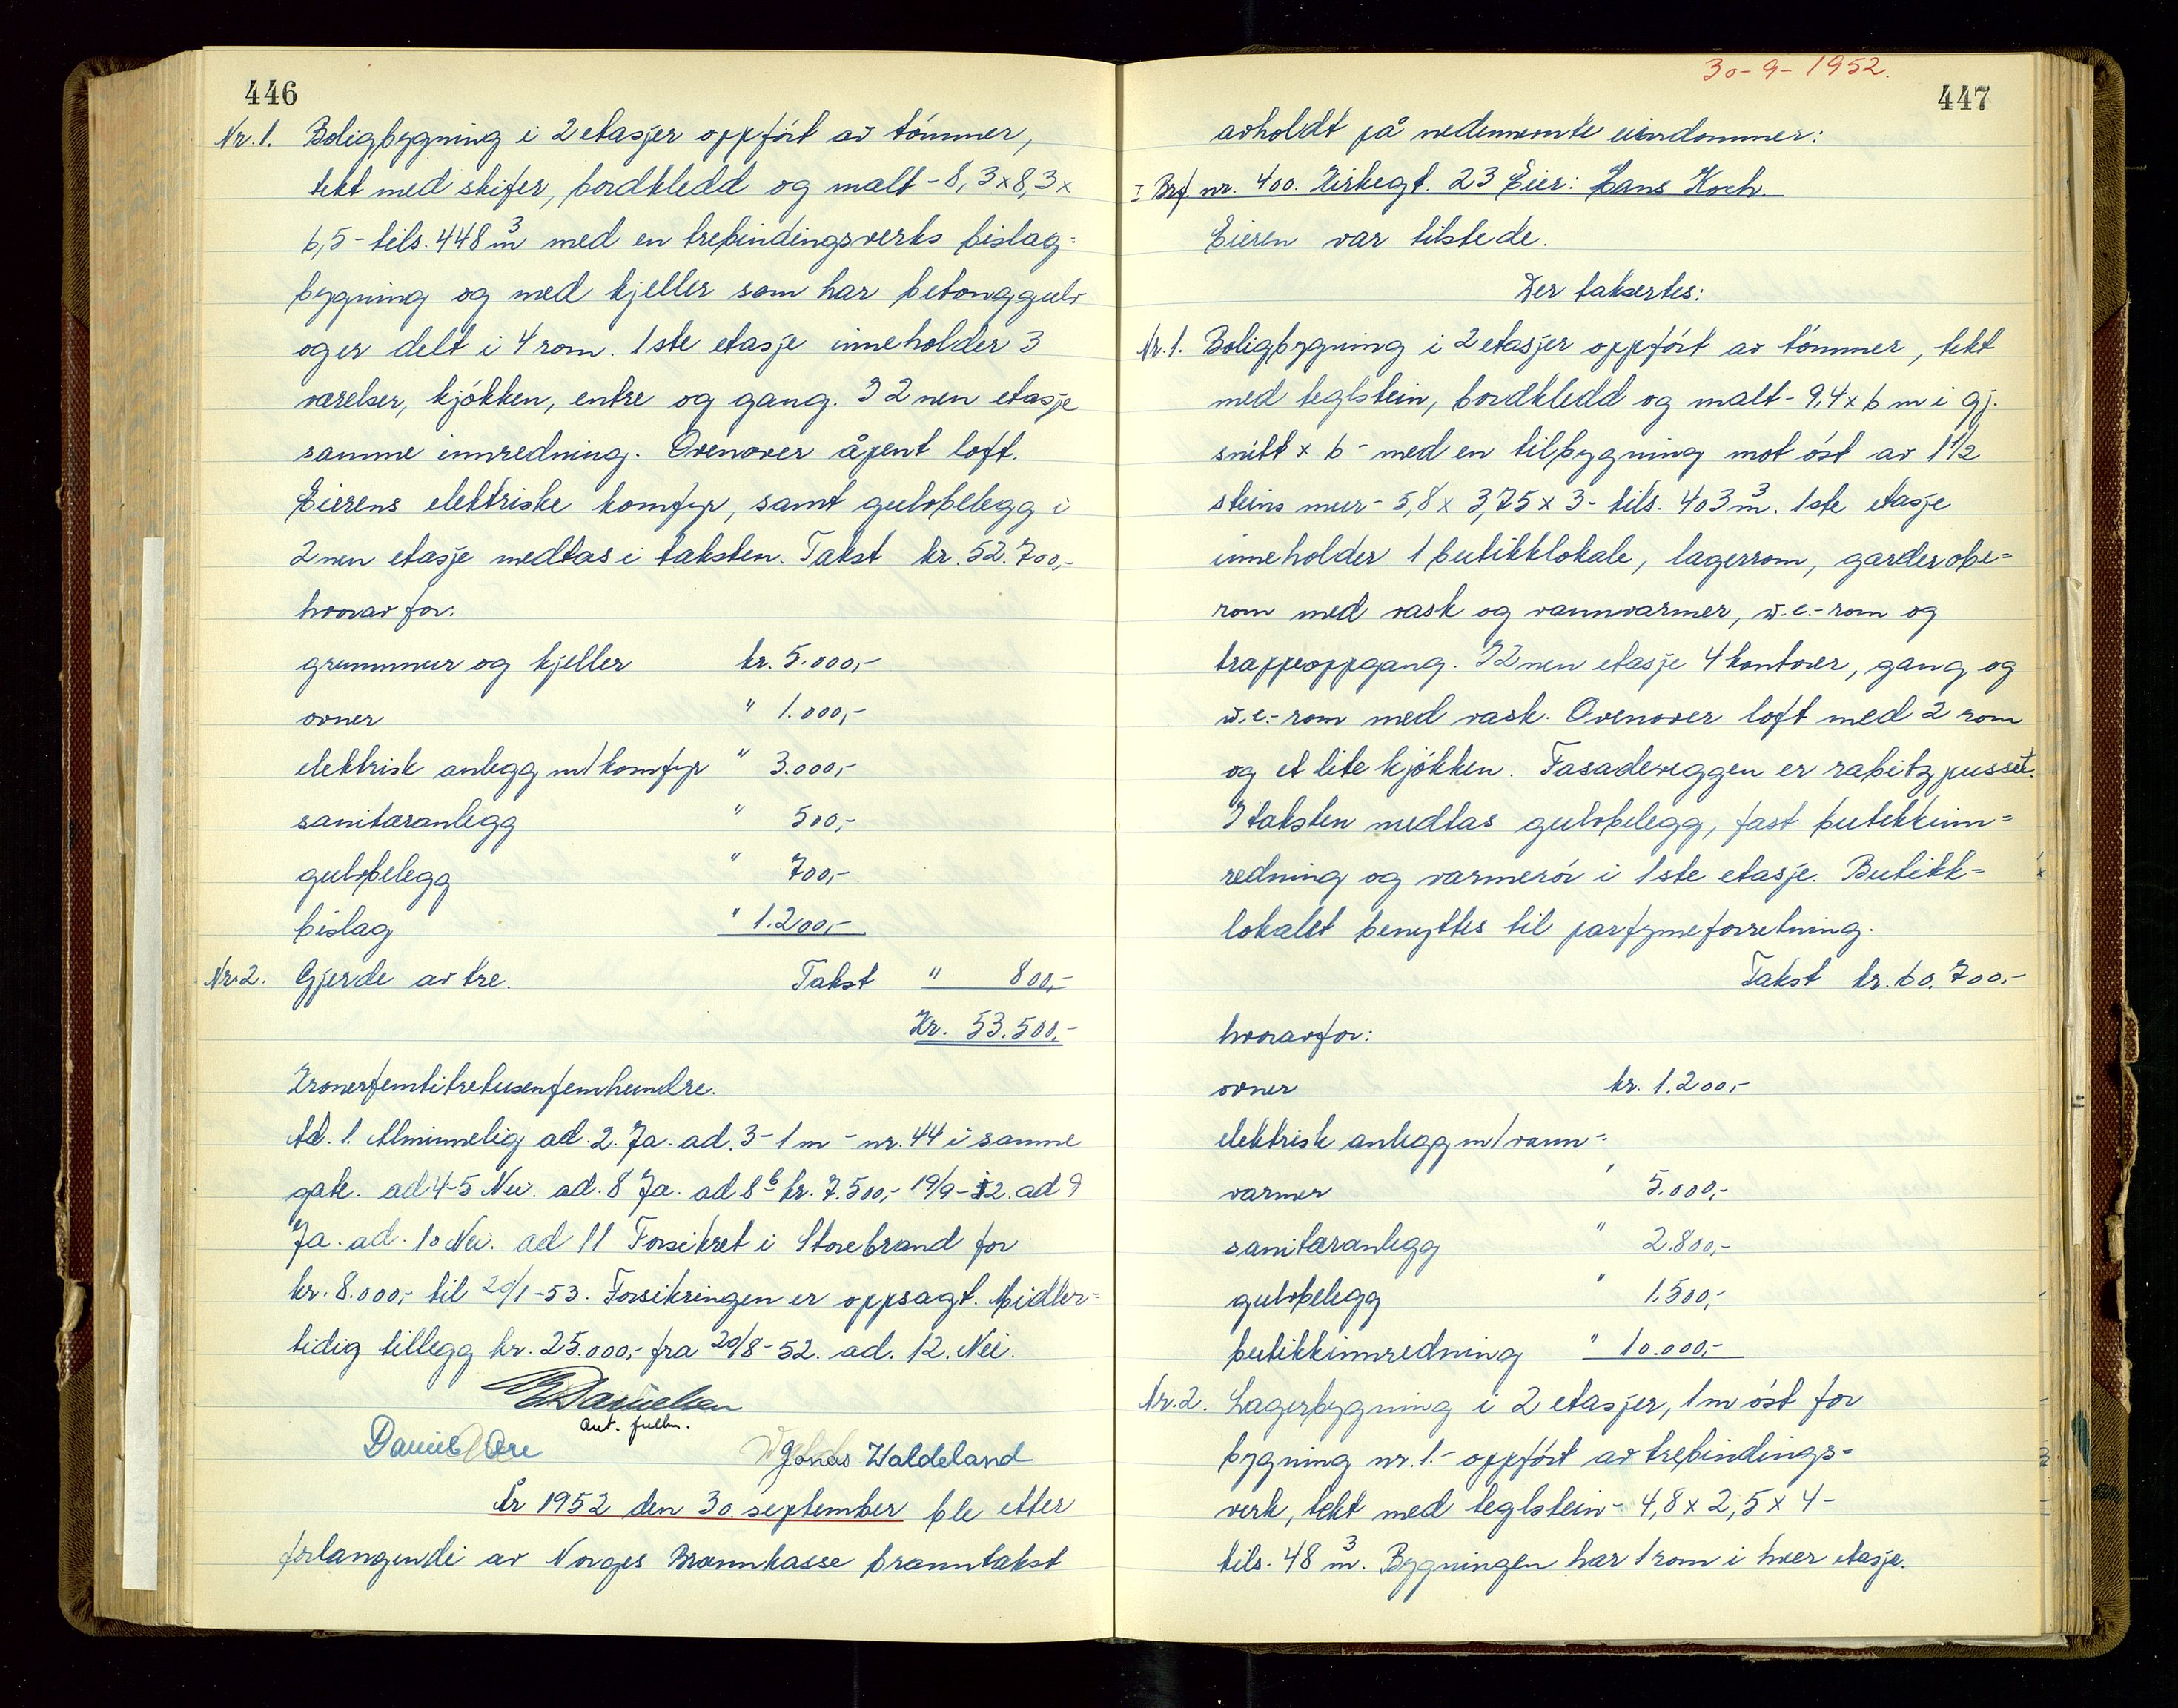 446
Nr. 1. Boligbygning i 2 etasjer oppført av tømmer,
tekt med skifer, bordkledd og malt - 8,3 x 8,3 x
6,5 - tils. 448 m³ med en trebindingsverks bislag=
bygning og med kjeller som har betonggulv
og er delt i 4 rom. 1ste etasje inneholder 3
værelser, kjøkken, entre og gang. I 2nen etasje
samme innredning. Ovenover åpent loft.
Eierens elektriske komfyr, samt gulvbelegg i
2nen etasje medtas i taksten. Takst kr. 52.700,-
hvorav for:
grunnmur og kjeller kr. 5.000,-
ovner " 1.000,-
elektrisk anlegg m/komfyr " 3.000,-
sanitæranlegg " 500,-
gulvbelegg " 700,-
bislag " 1.200,-
Nr. 2. Gjerde av tre. Takst " 800,-
Kr. 53.500,-
Kronerfemtitretusenfemhundre.
Ad. 1. Alminnelig ad. 2. Ja. ad. 3 - 1 m - nr. 44 i samme
gate. ad 4-5 Nei. ad. 8 Ja. ad 8b kr. 7.500,- 19/9-52. ad 9
Ja. ad. 10 Nei. ad 11 Forsikret i Storebrand for
kr. 8.000,- til 20/1-53. Forsikringen er oppsagt. Midler=
tidig tillegg kr. 25.000,- fra 20/8-52. ad. 12. Nei.
Danielsen
aut. fullm.
Daniel Ore Jonas Waldeland
År 1952 den 30. september ble etter
forlangende av Norges Brannkasse branntakst
30-9-1952.
447
avholdt på nedennevnte eiendommer:
I Brf. nr. 400. Kirkegt. 23 Eier: Hans Koch.
Eieren var tilstede.
Der taksertes:
Nr. 1. Boligbygning i 2 etasjer oppført av tømmer, tekt
med teglstein, bordkledd og malt - 9,4 x 6 m i gj.
snitt x 6 - med en tilbygning mot øst av 1 1/2
steins mur - 5,8 x 3,75 x 3 - tils. 403 m³. 1ste etasje
inneholder 1 butikklokale, lagerrom, garderobe=
rom med vask og vannvarmer, w.c.-rom og
trappeoppgang. I 2nen etasje 4 kontorer, gang og
w.c.-rom med vask. Ovenover loft med 2 rom
og et lite kjøkken. Fasadeveggen er rabitzpusset.
I taksten medtas gulvbelegg, fast butikkinn=
redning og varmerør i 1ste etasje. Butikk=
lokalet benyttes til parfymeforretning.
Takst kr. 60.700,-
hvorav for:
ovner kr. 1.200,-
elektrisk anlegg m/vann=
varmer " 5.000,-
sanitæranlegg " 2.800,-
gulvbelegg " 1.500,-
butikkinnredning " 10.000,-
Nr. 2. Lagerbygning i 2 etasjer, 1 m øst for
bygning nr. 1. - oppført av trebindings=
verk, tekt med teglstein - 4,8 x 2,5 x 4 -
tils. 48 m³. Bygningen har 1 rom i hver etasje.